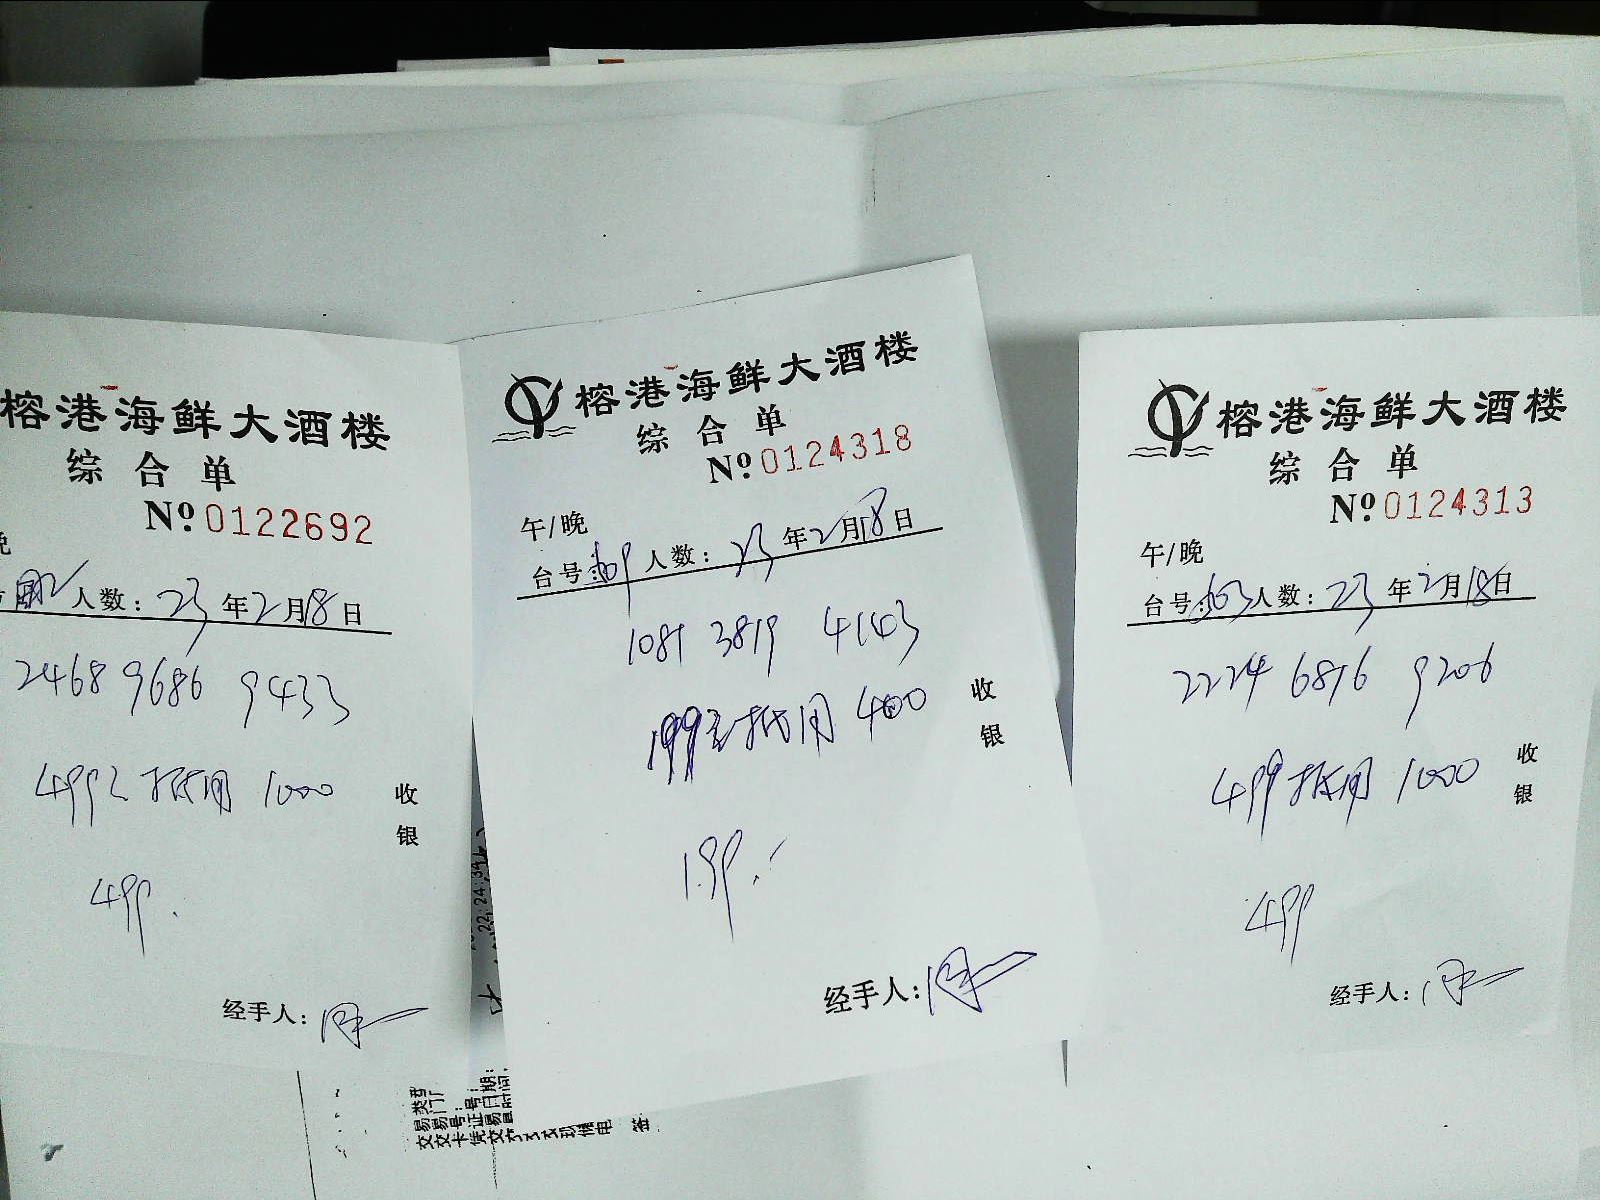 榕港海鲜大酒楼
综合单
№ 0122692
人数：23年2月18日
2468 9686 9433
499 抵用 1000
收银
499.
经手人：
榕港海鲜大酒楼
综合单
№ 0124318
午/晚
台号： 人数：23年2月18日
1081 3819 4143
199 抵用 400
收银
199.
经手人：
榕港海鲜大酒楼
综合单
№ 0124313
午/晚
台号： 人数：23年2月18日
2224 6816 9206
499 抵用 1000
收银
499
经手人：